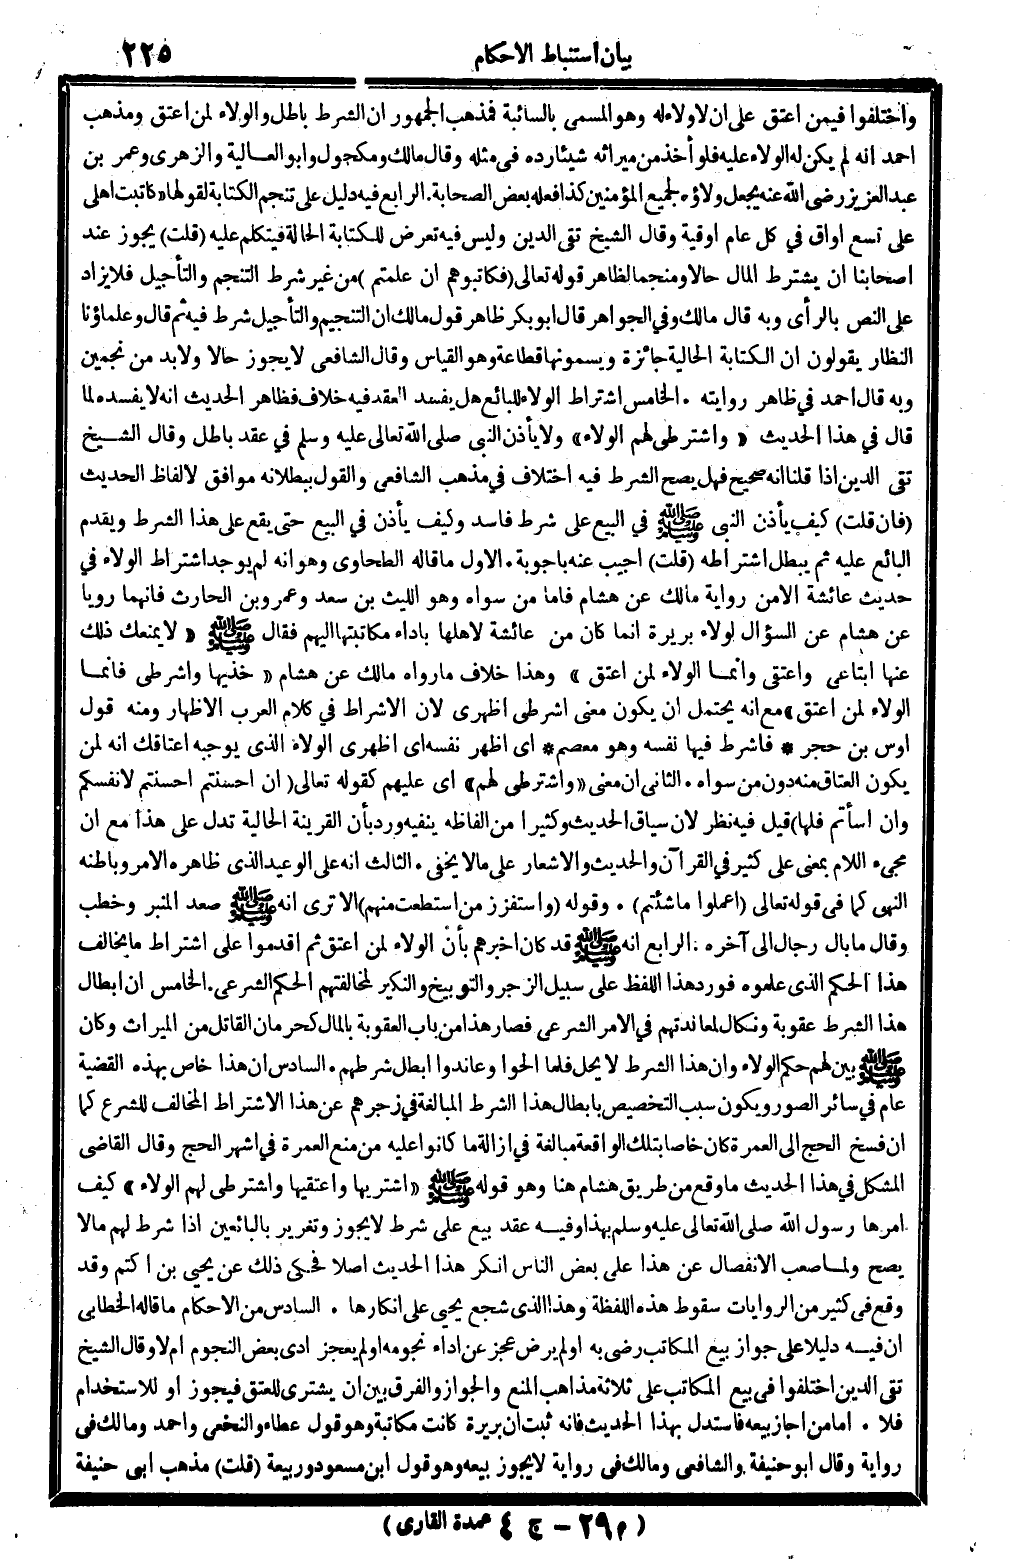 بيان استنباط الاحكام ٢٢٥
واختلفوا فيمن اعتق على ان لا ولاء له وهو المسمى بالسائبة فمذهب الجمهور ان الشرط باطل والولاء لمن اعتق ومذهب
احمد انه لم يكن له الولاء عليه فلو أخذ من ميراثه شيئا رده فى مثله وقال مالك ومكحول وابو العالية والزهرى وعمر بن
عبد العزيز رضى الله عنه يجعل ولاؤه لجميع المؤمنين كذا فعله بعض الصحابة . الرابع فيه دليل على تنجم الكتابة لقولها «كاتبت اهلى
على تسع اواق في كل عام اوقية وقال الشيخ تقى الدين وليس فيه تعرض للكتابة الحالة فيتكلم عليه (قلت) يجوز عند
اصحابنا ان يشترط المال حالا ومنجما لظاهر قوله تعالى (فكاتبوهم ان علمتم ) من غير شرط التنجم والتأجيل فلا يزاد
على النص بالرأى وبه قال مالك وفي الجواهر قال ابو بكر ظاهر قول مالك ان التنجيم والتأجيل شرط فيه ثم قال وعلماؤنا
النظار يقولون ان الكتابة الحالية جائزة ويسمونها قطاعة وهو القياس وقال الشافعى لا يجوز حالا ولابد من نجمين
وبه قال احمد في ظاهر روايته . الخامس اشتراط الولاء للبائع هل يفسد العقد فيه خلاف فظاهر الحديث انه لا يفسده لما
قال في هذا الحديث « واشترطى لهم الولاء» ولا يأذن النبى صلى الله تعالى عليه وسلم في عقد باطل وقال الشيخ
تقى الدين اذا قلنا انه صحيح فهل يصح الشرط فيه اختلاف في مذهب الشافعى والقول ببطلانه موافق لالفاظ الحديث
(فان قلت) كيف يأذن النبى ﷺ في البيع على شرط فاسد وكيف يأذن في البيع حتى يقع على هذا الشرط ويقدم
البائع عليه ثم يبطل اشتراطه (قلت) اجيب عنه باجوبة . الاول ما قاله الطحاوى وهو انه لم يوجد اشتراط الولاء في
حديث عائشة الا من رواية مالك عن هشام فاما من سواه وهو الليث بن سعد وعمرو بن الحارث فانهما رويا
عن هشام عن السؤال لولاء بريرة انما كان من عائشة لاهلها باداء مكاتبتها اليهم فقال ﷺ « لا يمنعك ذلك
عنها ابتاعى واعتقى وانما الولاء لمن اعتق » وهذا خلاف ما رواه مالك عن هشام « خذيها واشرطى فانما
الولاء لمن اعتق» مع انه يحتمل ان يكون معنى اشرطى اظهرى لان الاشراط في كلام العرب الاظهار ومنه قول
اوس بن حجر * فاشرط فيها نفسه وهو معصم * اى اظهر نفسه اى اظهرى الولاء الذى يوجبه اعتاقك انه لمن
يكون العتاق منه دون من سواه . الثانى ان معنى «واشترطى لهم» اى عليهم كقوله تعالى ( ان احسنتم احسنتم لانفسكم
وان اسأتم فلها) قيل فيه نظر لان سياق الحديث وكثيرا من الفاظه ينفيه ورد بأن القرينة الحالية تدل على هذا مع ان
مجىء اللام بمعنى على كثير في القرآن والحديث والاشعار على مالا يخفى . الثالث انه على الوعيد الذى ظاهره الامر وباطنه
النهى كما فى قوله تعالى (اعملوا ما شئتم) . وقوله (واستفزز من استطعت منهم) الا ترى انه ﷺ صعد المنبر وخطب
وقال ما بال رجال الى آخره . الرابع انه ﷺ قد كان اخبرهم بأن الولاء لمن اعتق ثم اقدموا على اشتراط ما يخالف
هذا الحكم الذى علموه فورد هذا اللفظ على سبيل الزجر والتوبيخ والنكير لمخالفتهم الحكم الشرعى . الخامس ان ابطال
هذا الشرط عقوبة ونكال لمعاندتهم في الامر الشرعى فصار هذا من باب العقوبة بالمال كحرمان القاتل من الميراث وكان
ﷺ بين لهم حكم الولاء وان هذا الشرط لا يحل فلما الحوا وعاندوا ابطل شرطهم . السادس ان هذا خاص بهذه القضية
عام في سائر الصور ويكون سبب التخصيص بابطال هذا الشرط المبالغة في زجرهم عن هذا الاشتراط المخالف للشرع كما
ان فسخ الحج الى العمرة كان خاصا بتلك الواقعة مبالغة في ازالة ما كانوا عليه من منع العمرة في اشهر الحج وقال القاضى
المشكل في هذا الحديث ما وقع من طريق هشام هنا وهو قوله ﷺ «اشتريها واعتقيها واشترطى لهم الولاء» كيف
امرها رسول الله صلى الله تعالى عليه وسلم بهذا وفيه عقد بيع على شرط لا يجوز وتغرير بالبائعين اذا شرط لهم مالا
يصح ولما صعب الانفصال عن هذا على بعض الناس انكر هذا الحديث اصلا فحكى ذلك عن يحيى بن اكثم وقد
وقع فى كثير من الروايات سقوط هذه اللفظة وهذا الذى شجع يحيى على انكارها . السادس من الاحكام ما قاله الخطابى
ان فيه دليلا على جواز بيع المكاتب رضى به او لم يرض عجز عن اداء نجومه او لم يعجز ادى بعض النجوم ام لا وقال الشيخ
تقى الدين اختلفوا فى بيع المكاتب على ثلاثة مذاهب المنع والجواز والفرق بين ان يشترى للعتق فيجوز او للاستخدام
فلا . اما من اجاز بيعه فاستدل بهذا الحديث فانه ثبت ان بريرة كانت مكاتبة وهو قول عطاء والنخعى واحمد ومالك فى
رواية وقال ابو حنيفة والشافعى ومالك فى رواية لا يجوز بيعه وهو قول ابن مسعود وربيعة (قلت) مذهب ابى حنيفة
( م ٢٩ — ج ٤ عمدة القارى )